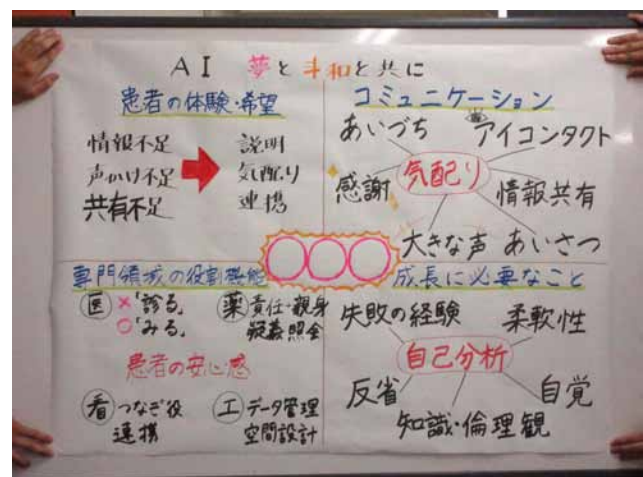 AI 夢と斗和と共に
患者の体験・希望
情報不足
声かけ不足
共有不足
説明
気配り
連携
コミュニケーション
あいづち
アイコンタクト
感謝
気配り
情報共有
大きな声
あいさつ
〇〇〇
専門領域の役割機能
医 ×「診る」
〇「みる」
薬 責任・親身
疑義照会
患者の安心感
看 つなぎ役
連携
工 データ管理
空間設計
成長に必要なこと
失敗の経験
柔軟性
自己分析
反省
自覚
知識・倫理観